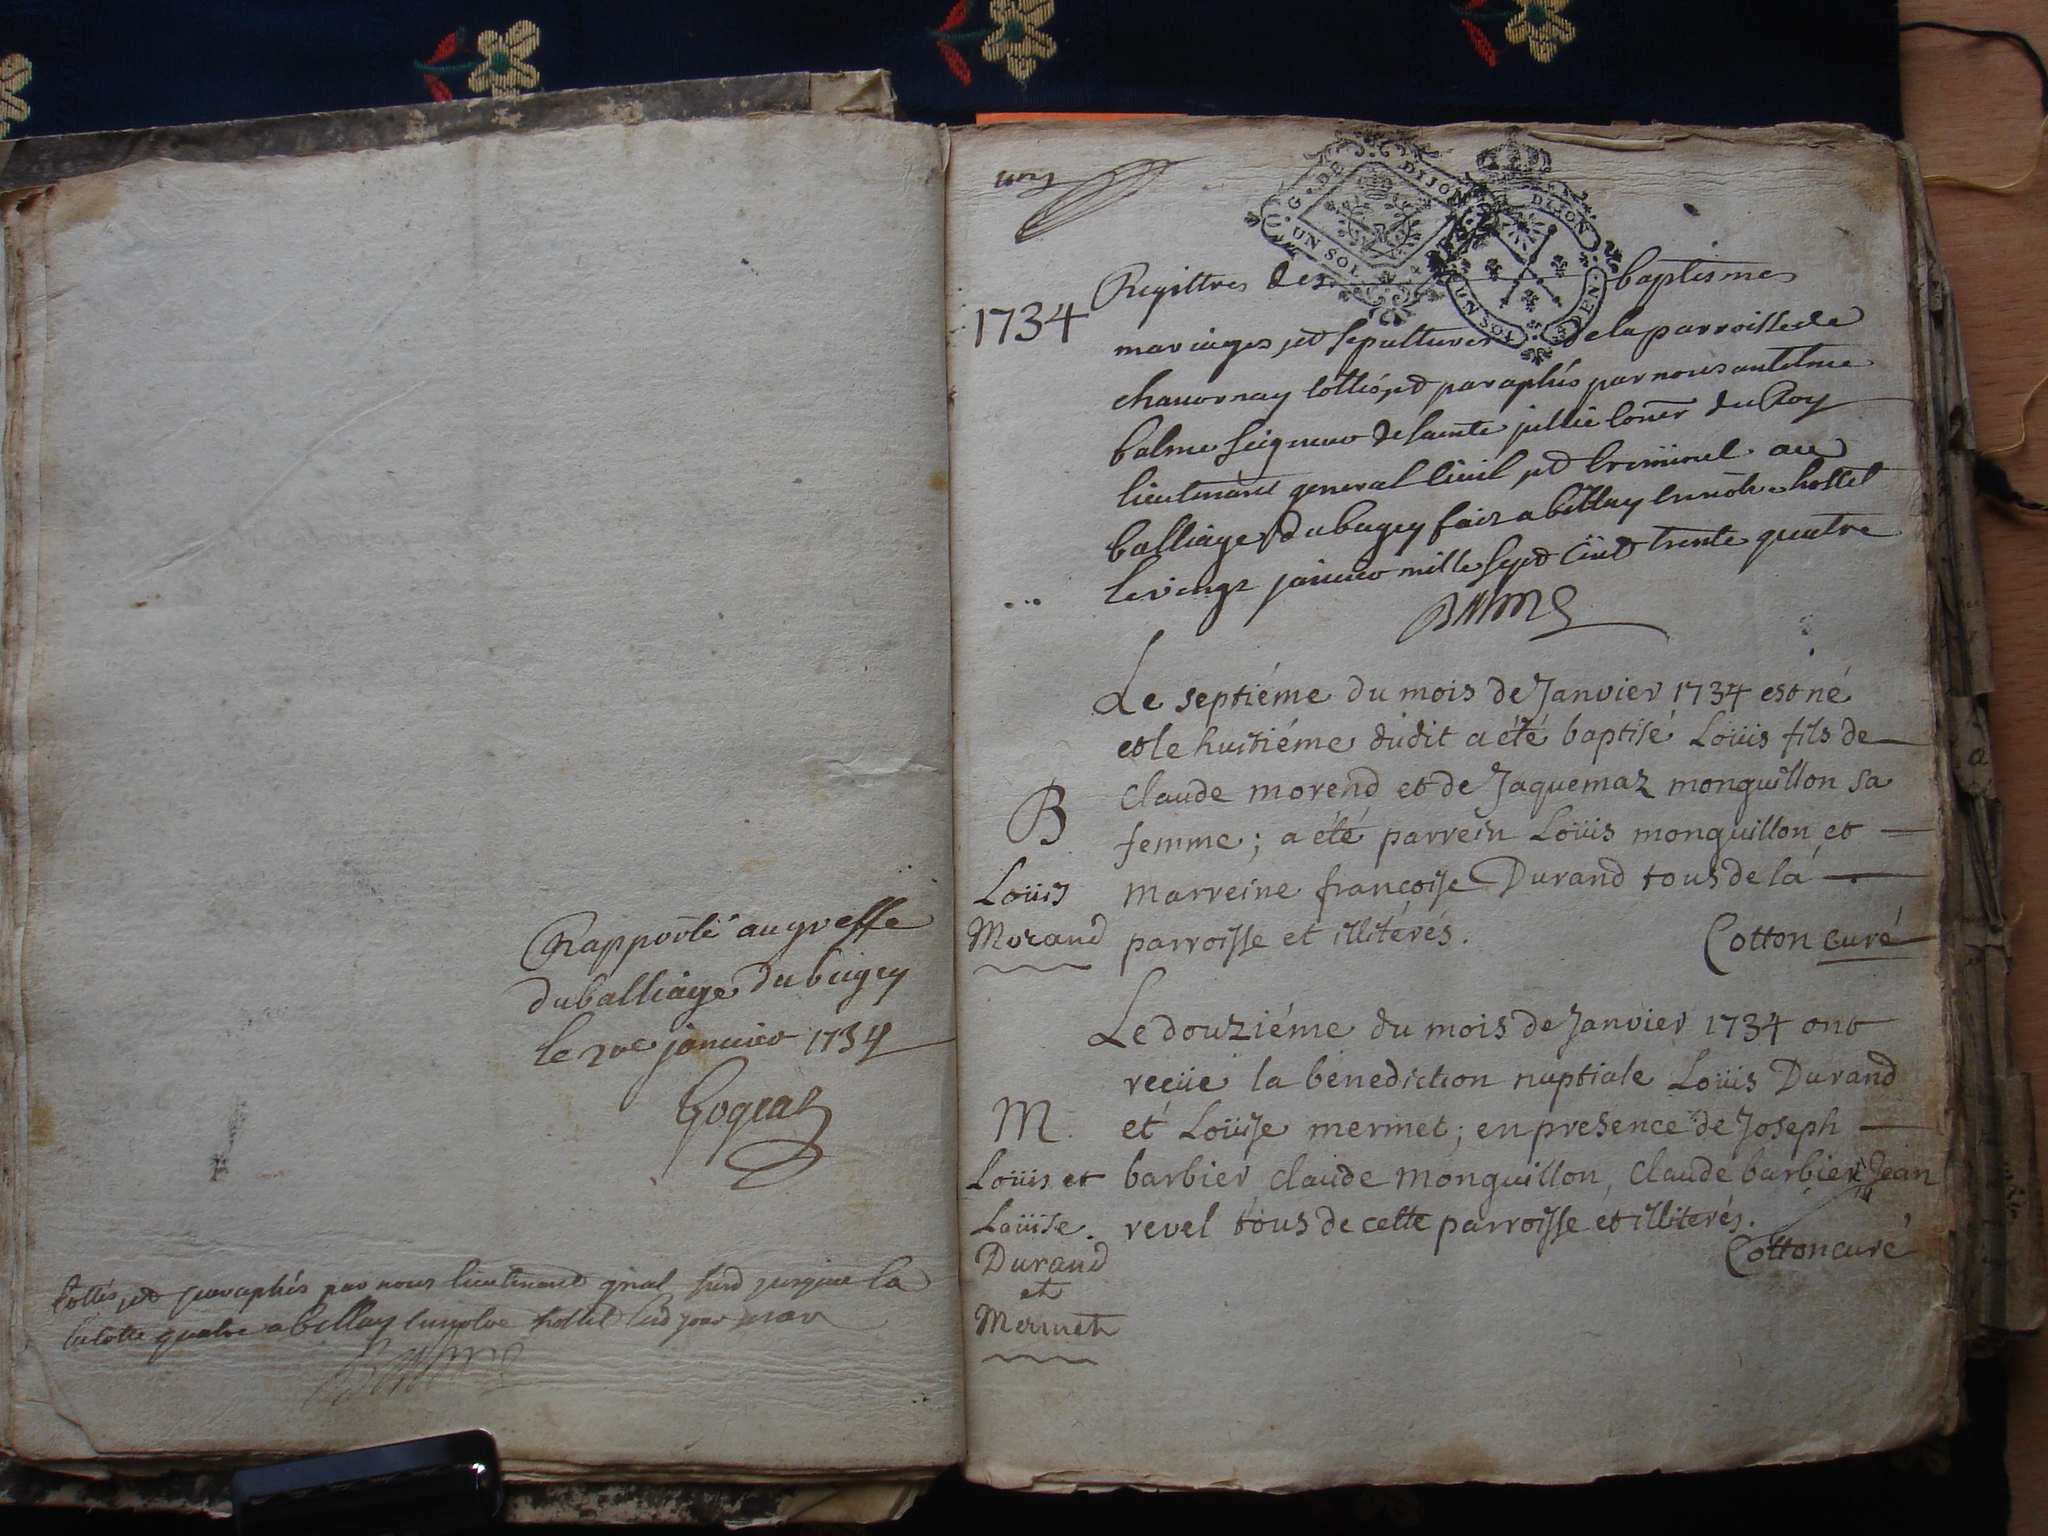 Rapporté au greffe
du balliage du bugey
le 20e janvier 1734
cottés et paraphés par nous lieutenant gnal
quatre a bellay hostel jour
Balme
1734
G. DE DIJON
UN SOL
DIJON
UN SOL 4 DEN.
Registres des baptismes
mariages et sepultures de la parroisse de
chauornay cottés et paraphés par nous antelme
balme seigneur de sainte jullie coner du Roy
lieutenant general ciuil et criminel au
balliage du bugey fait a bellay en notre hostel
le vingt janvier mille sept cent trente quatre
Balme
Le septiéme du mois de Janvier 1734 est né
et le huitiéme dudit a été baptisé Loüis fils de
Claude morend et de Jaquemaz monguillon sa
femme ; a été parrein Loüis monguillon et
marreine françoise Durand tous de la
parroisse et illitérés.
Cotton curé
B
Loüis
Morand
Le douziéme du mois de Janvier 1734 ont
reçüe la bénediction nuptiale Loüis Durand
et Loüise mermet ; en presence de Joseph
barbier, Claude monguillon, Claude barbier, Jean
revel tous de cette parroisse et illiterés.
Cotton curé
M.
Loüis et
Loüise.
Durand
et
Mermet